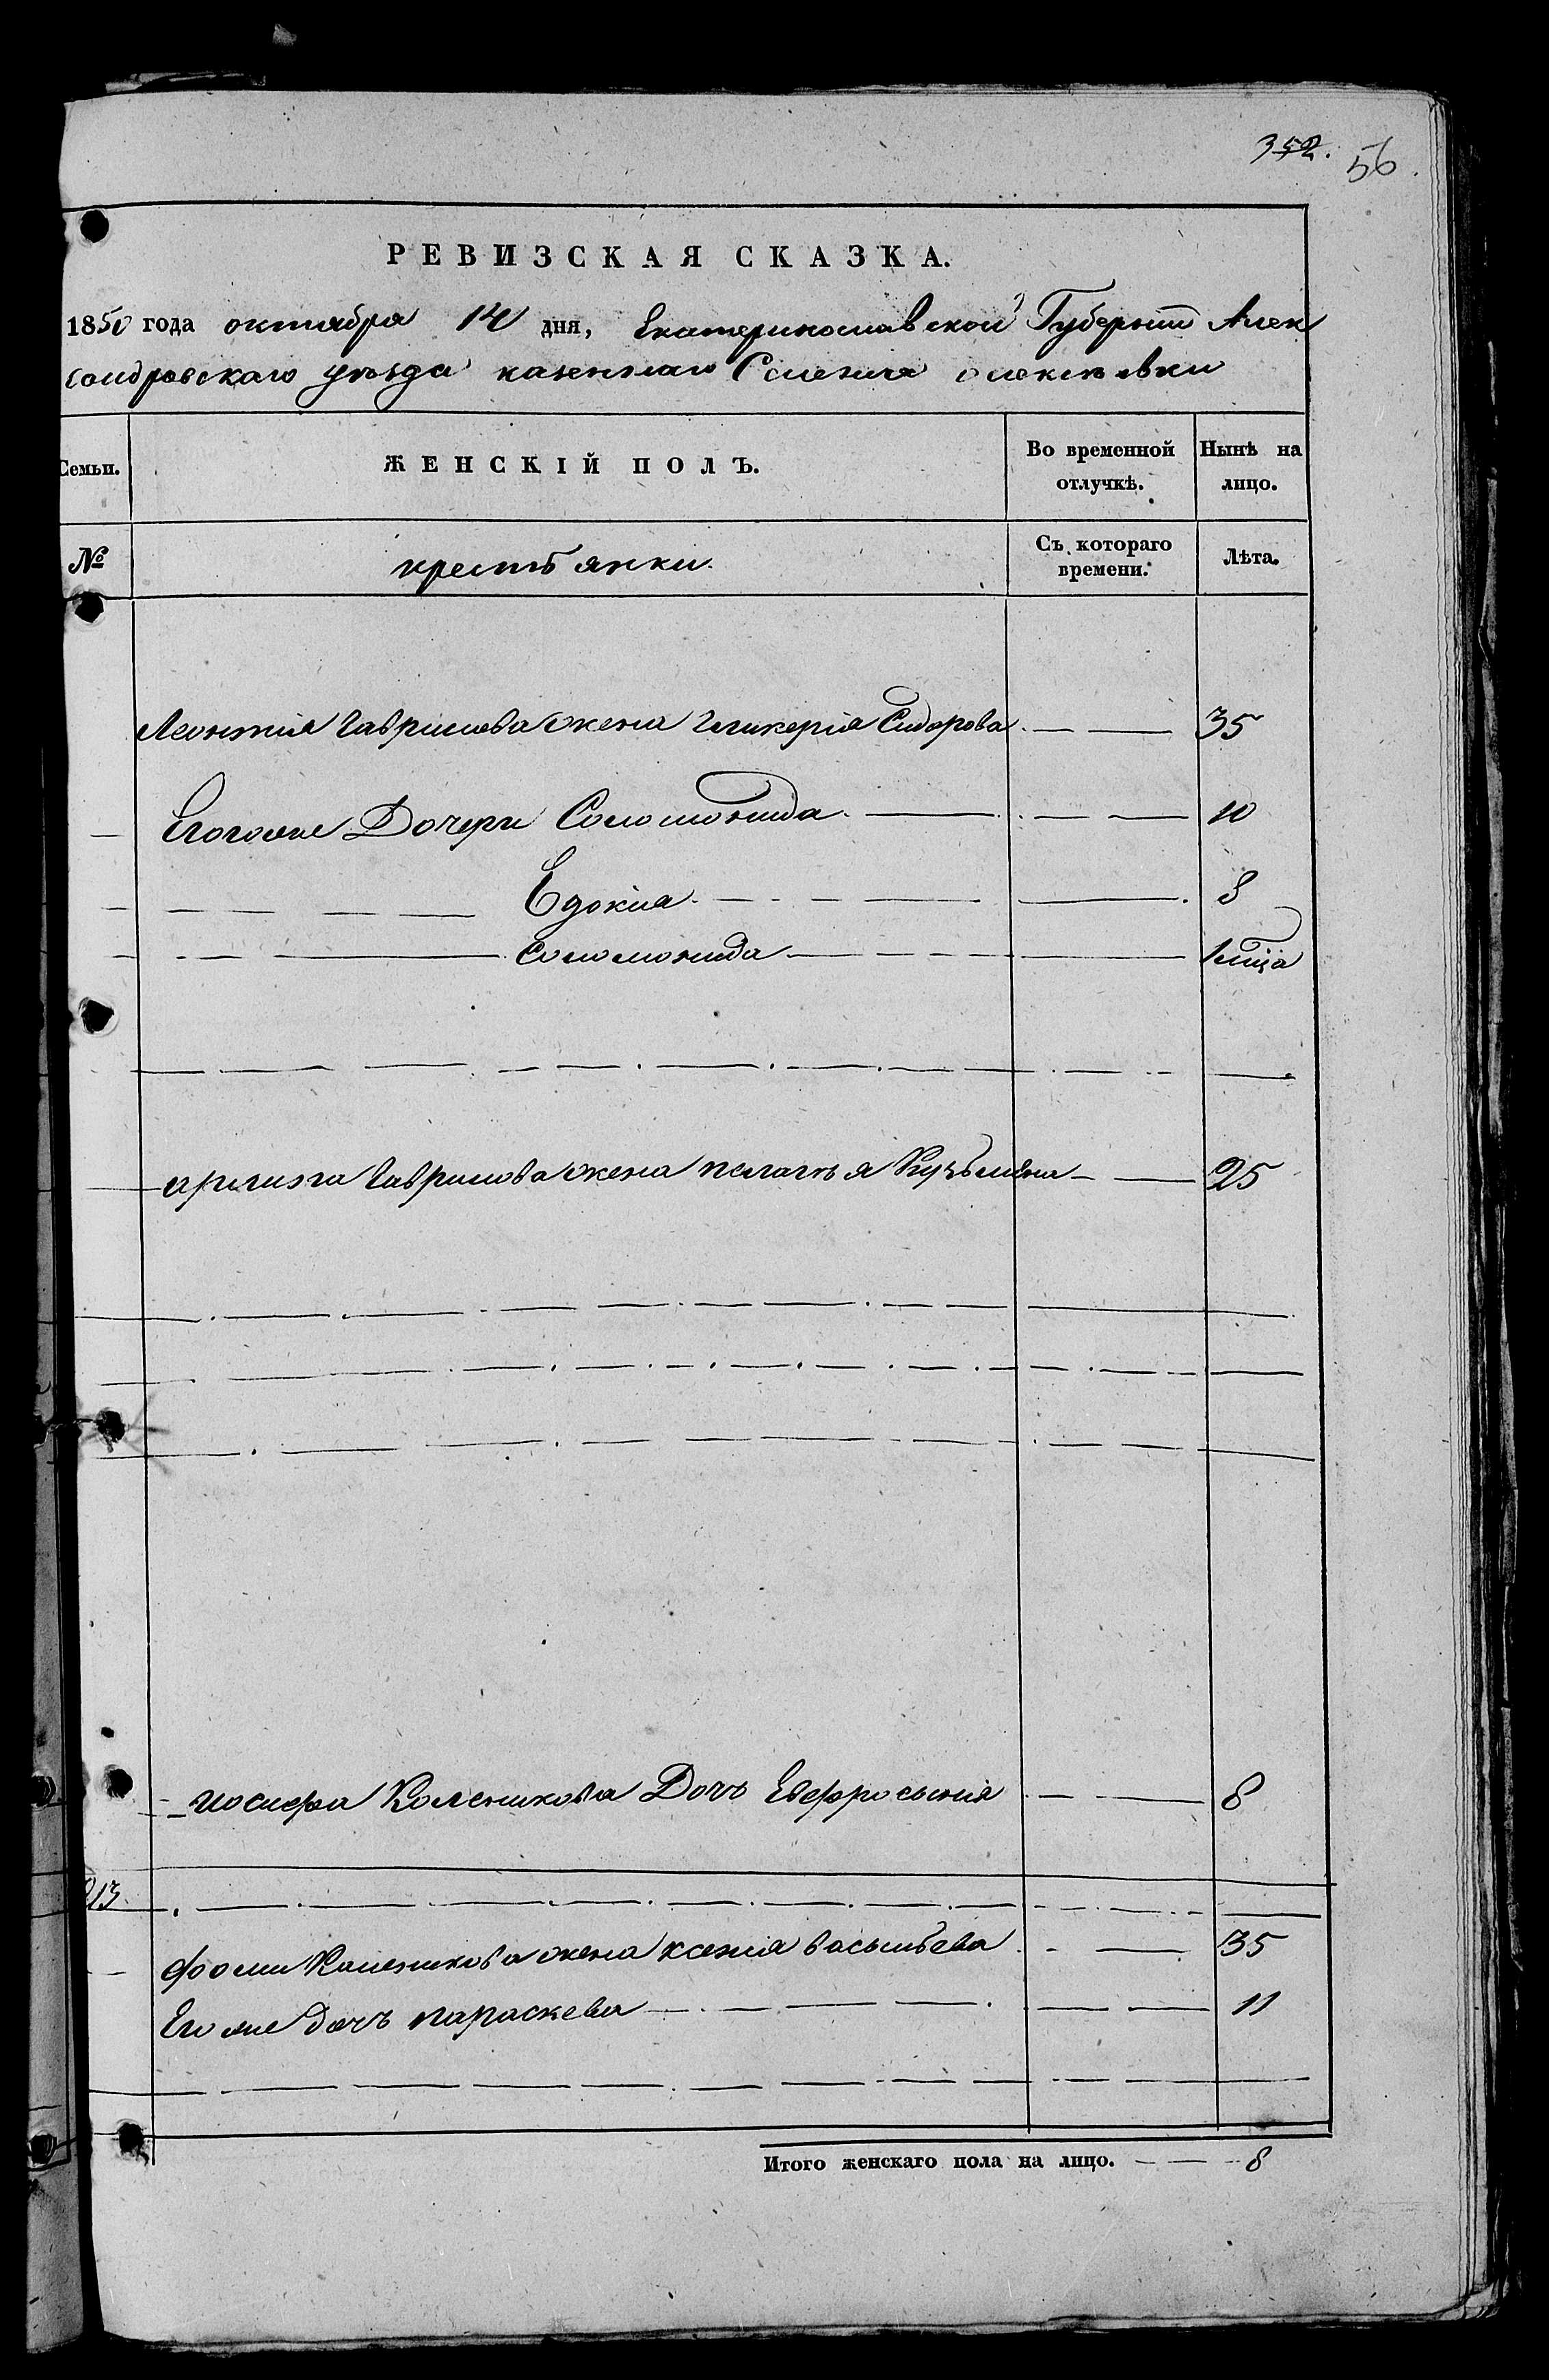 352. 56
РЕВИЗСКАЯ СКАЗКА.
1850 года октября 14 дня, Екатеринославской Губернии Алек
сондровскаго уѣзда казеннаго Селенія олексѣевки
Семьи. ЖЕНСКІЙ ПОЛЪ. Во временной отлучкѣ. Нынѣ на лицо.
№ крестьянки. Съ котораго времени. Лѣта.
Леонтія Гаврилова жена Гликерія Сидорова 35
Егогоже Дочери Соломонида 10
Едокия 8
Соломонида 1 мца
Гаврилова жена пелагѣя Кузьмина 25
иосифа Коленикова Дочъ Евфросыния 8
213
фомы Коленикова жена ксения васильева 35
Его же дочъ параскева 11
Итого женскаго пола на лицо. 8